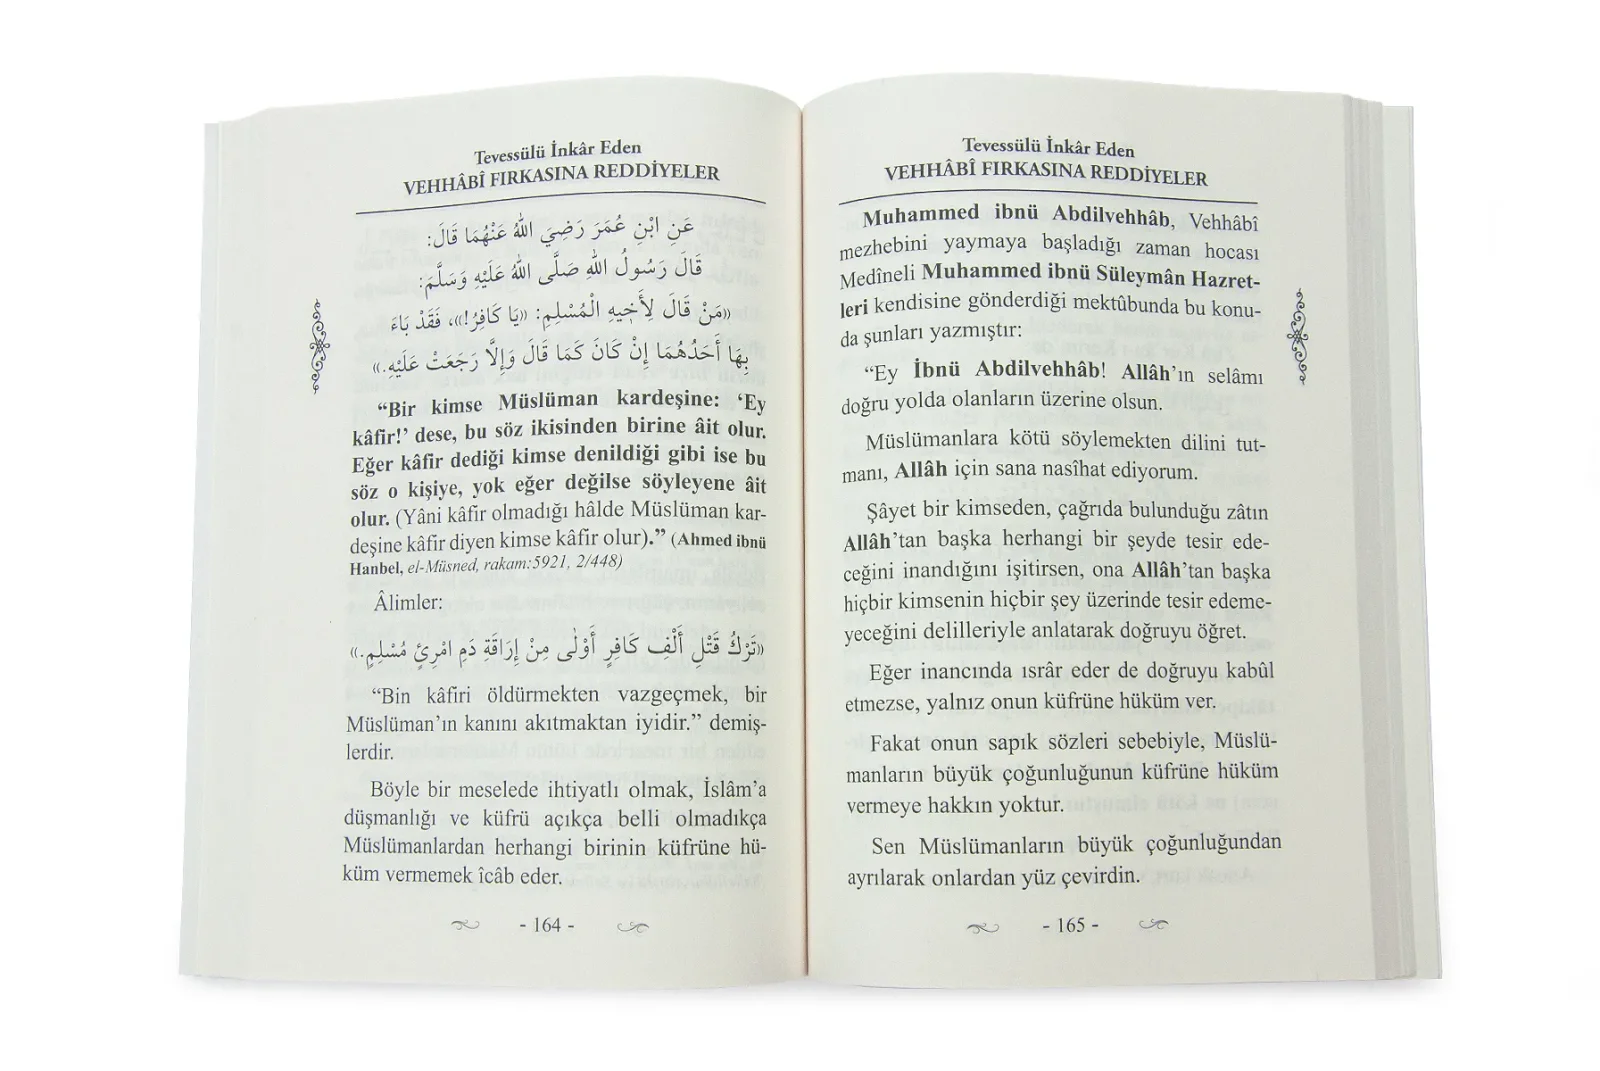 Tevessülü İnkâr Eden
VEHHÂBÎ FIRKASINA REDDİYELER
عَنِ ابْنِ عُمَرَ رَضِيَ اللّٰهُ عَنْهُمَا قَالَ:
قَالَ رَسُولُ اللّٰهِ صَلَّى اللّٰهُ عَلَيْهِ وَسَلَّمَ:
«مَنْ قَالَ لِأَخِيهِ الْمُسْلِمِ: «يَا كَافِرُ!»، فَقَدْ بَاءَ
بِهَا أَحَدُهُمَا إِنْ كَانَ كَمَا قَالَ وَإِلَّا رَجَعَتْ عَلَيْهِ.»
“Bir kimse Müslüman kardeşine: ‘Ey
kâfir!’ dese, bu söz ikisinden birine âit olur.
Eğer kâfir dediği kimse denildiği gibi ise bu
söz o kişiye, yok eğer değilse söyleyene âit
olur. (Yâni kâfir olmadığı hâlde Müslüman kar-
deşine kâfir diyen kimse kâfir olur).” (Ahmed ibnü
Hanbel, el-Müsned, rakam:5921, 2/448)
Âlimler:
«تَرْكُ قَتْلِ أَلْفِ كَافِرٍ أَوْلٰى مِنْ إِرَاقَةِ دَمِ امْرِئٍ مُسْلِمٍ.»
“Bin kâfiri öldürmekten vazgeçmek, bir
Müslüman’ın kanını akıtmaktan iyidir.” demiş-
lerdir.
Böyle bir meselede ihtiyatlı olmak, İslâm’a
düşmanlığı ve küfrü açıkça belli olmadıkça
Müslümanlardan herhangi birinin küfrüne hü-
küm vermemek îcâb eder.
- 164 -
Tevessülü İnkâr Eden
VEHHÂBÎ FIRKASINA REDDİYELER
Muhammed ibnü Abdilvehhâb, Vehhâbî
mezhebini yaymaya başladığı zaman hocası
Medîneli Muhammed ibnü Süleymân Hazret-
leri kendisine gönderdiği mektûbunda bu konu-
da şunları yazmıştır:
“Ey İbnü Abdilvehhâb! Allâh’ın selâmı
doğru yolda olanların üzerine olsun.
Müslümanlara kötü söylemekten dilini tut-
manı, Allâh için sana nasîhat ediyorum.
Şâyet bir kimseden, çağrıda bulunduğu zâtın
Allâh’tan başka herhangi bir şeyde tesir ede-
ceğini inandığını işitirsen, ona Allâh’tan başka
hiçbir kimsenin hiçbir şey üzerinde tesir edeme-
yeceğini delilleriyle anlatarak doğruyu öğret.
Eğer inancında ısrâr eder de doğruyu kabûl
etmezse, yalnız onun küfrüne hüküm ver.
Fakat onun sapık sözleri sebebiyle, Müslü-
manların büyük çoğunluğunun küfrüne hüküm
vermeye hakkın yoktur.
Sen Müslümanların büyük çoğunluğundan
ayrılarak onlardan yüz çevirdin.
- 165 -